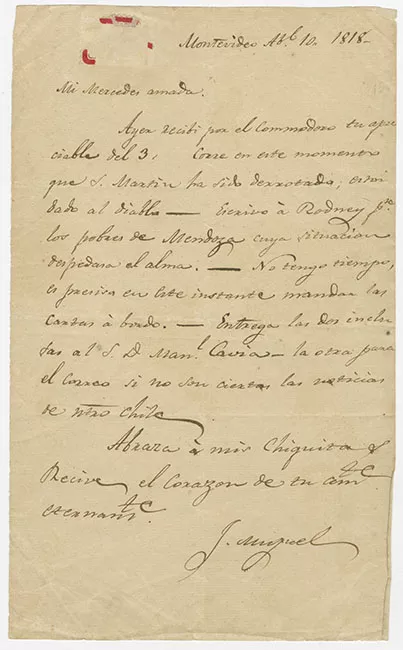 Montevideo Ab.l 10. 1818-
Mi Mercedes amada.
Ayer recivi por el Commodoro tu apre
ciable del 3, Corre en este momento
que S. Martin ha sido derrotado; estoi
dado al diablo — Escrivo à Rodney p.r
los pobres de Mendoza cuya situacion
despedasa el alma. — No tengo tiempo,
es precisa en este instante mandar las
cartas à bordo. — Entrega las dos inclu
sas al S. D. Man.l Cavia — la otra para
el correo si no son ciertas las noticias
de ntro Chile
Abraza à mis Chiquitas y
Recive el corazon de tu am.te
eternam.te
J. Miguel